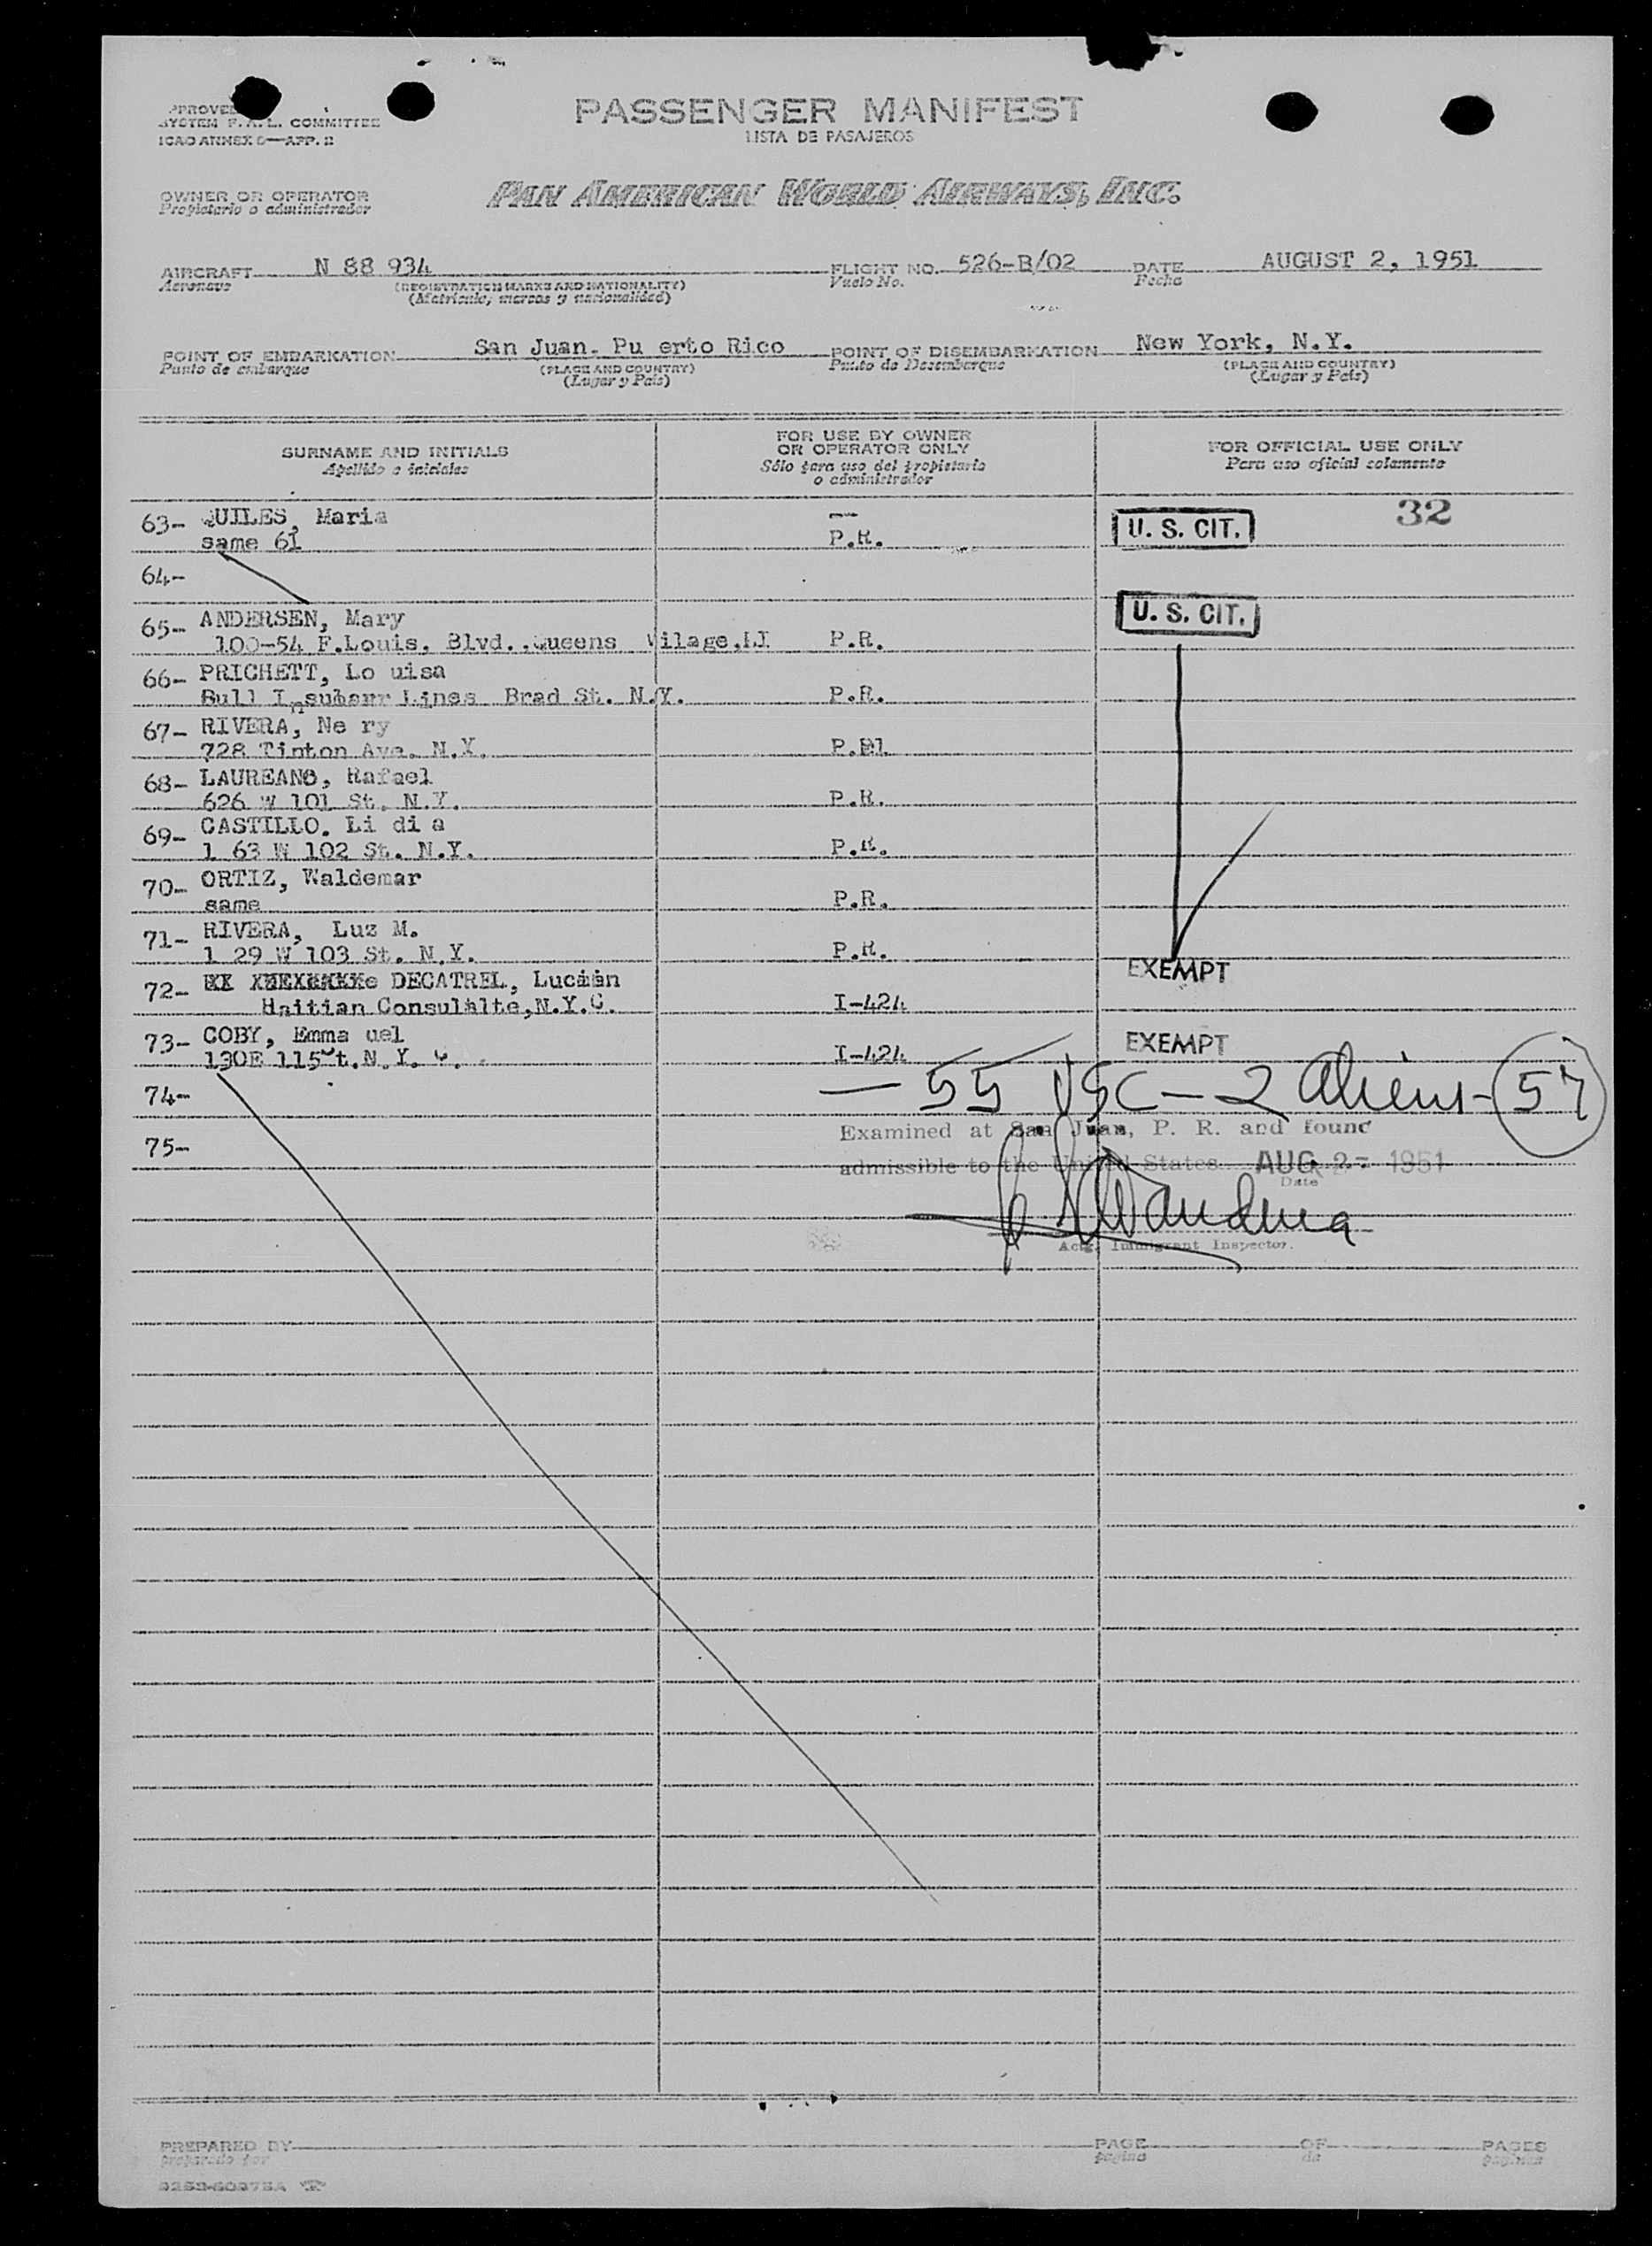 SYSTEM F.A.L. COMMITTEE
ICAO ANNEX 9—APP. 2
PASSENGER MANIFEST
LISTA DE PASAJEROS
OWNER OR OPERATOR
Propietario o administrador
PAN AMERICAN WORLD AIRWAYS, INC.
AIRCRAFT N 88 934 FLIGHT NO. 526-B/02 DATE AUGUST 2, 1951
Aeronave (REGISTRATION MARKS AND NATIONALITY) Vuelo No. Fecha
(Matricula, marcas y nacionalidad)
POINT OF EMBARKATION San Juan. Pu erto Rico POINT OF DISEMBARKATION New York, N.Y.
Punto de embarque (PLACE AND COUNTRY) Punto de Desembarque (PLACE AND COUNTRY)
(Lugar y Pais) (Lugar y Pais)
SURNAME AND INITIALS FOR USE BY OWNER OR OPERATOR ONLY FOR OFFICIAL USE ONLY
Apellido e iniciales Sólo para uso del propietario o administrador Para uso oficial solamente
63- QUILES, Maria 32
same 61 P.R. U. S. CIT.
64-
65- ANDERSEN, Mary U. S. CIT.
100-54 F.Louis, Blvd.,Queens Vilage,LI P.R.
66- PRICHETT, Lo uisa
Bull Lines Brad St. N.Y. P.R.
67- RIVERA, Ne ry
728 Tinton Ave. N.Y.
68- LAUREANO, Rafael
626 W 101 St. N.Y. P.R.
69- CASTILLO. Li di a
1 63 W 102 St. N.Y. P.R.
70- ORTIZ, Waldemar
same P.R.
71- RIVERA, Luz M.
1 29 W 103 St. N.Y. P.R.
72- DECATREL, Lucien EXEMPT
Haitian Consulalte,N.Y.C. I-424
73- COBY, Emma uel EXEMPT
130E 115St.N.Y. C. I-424
74- — 55 USC — 2 Aliens - 57
75- Examined at San Juan, P. R. and found
admissible to the United States AUG 2- 1951
Date
Actg. Immigrant Inspector.
PREPARED BY PAGE OF PAGES
preparado por pagina de paginas